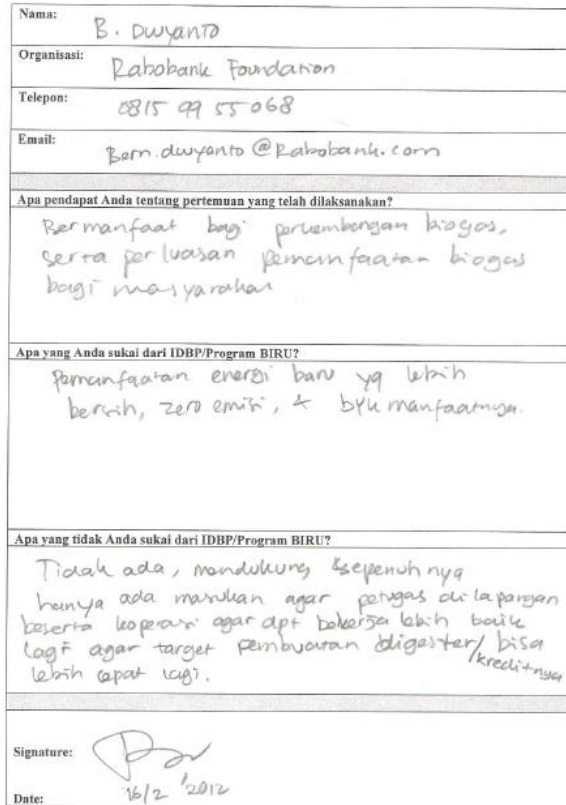 Nama: B. Dwyanto
Organisasi: Rabobank Foundation
Telepon: 0815 99 55 068
Email: Bern.dwyanto@Rabobank.com
Apa pendapat Anda tentang pertemuan yang telah dilaksanakan?
Bermanfaat bagi perkembangan biogas,
serta perluasan pemanfaatan biogas
bagi masyarakat
Apa yang Anda sukai dari IDBP/Program BIRU?
Pemanfaatan energi baru yg lebih
bersih, zero emisi, & byk manfaatnya.
Apa yang tidak Anda sukai dari IDBP/Program BIRU?
Tidak ada, mendukung sepenuhnya
hanya ada masukan agar petugas di lapangan
beserta koperasi agar dpt bekerja lebih baik
lagi agar target pembuatan digester/kreditnya bisa
lebih cepat lagi.
Signature:
Date: 16/2 '2012